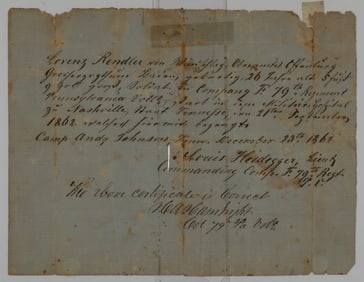 Lorenz Rendler von Oberamtes Offenburg
Grossherzogthum Baden, gebürtig, 26 Jahre alt
Soldat in Company F. 79th Regiment
Pennsylvania Vols. starb in dem Hospital
zu Nashville, Staat Tennessee, am 21ten September
1862 welches hiermit bezeugt
Camp Andy Johnson, Tenn. December 23rd 1862
Louis Heidegger, Lieut
Commanding Comp. F. 79th Regt
P. V.
The above certificate is Correct
H A Hambright
Col 79th Pa Vols